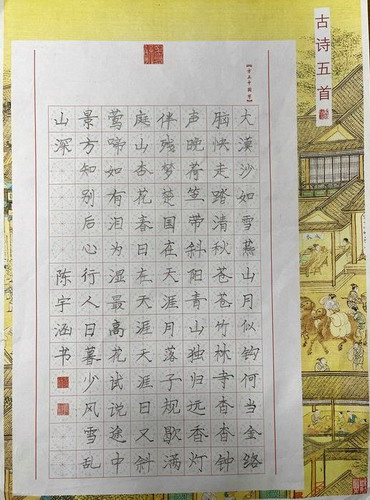 古诗五首
大漠沙如雪燕山月似钩何当金络
脑快走踏清秋苍苍竹林寺杳杳钟
声晚荷笠带斜阳青山独归远香灯
伴残梦楚国在天涯月落子规歇满
庭山杏花春日在天涯天涯日又斜
莺啼如有泪为湿最高花试说途中
景方知别后心行人日暮少风雪乱
山深 陈宇涵书